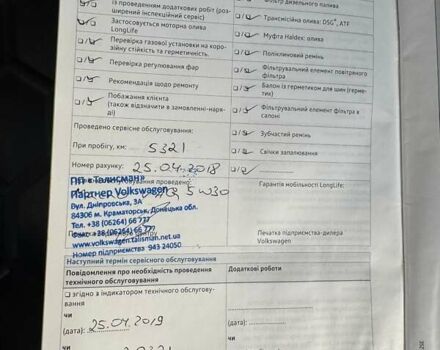 із проведенням додаткових робіт (роз-
ширений інспекційний сервіс)
Застосовується моторна олива
LongLife
Перевірка газової установки на коро-
зійну стійкість та герметичність.
Перевірка регулювання фар
Рекомендація щодо ремонту
Побажання клієнта
(також відзначити в замовленні-наря-
ді)
Фільтр дизельного палива
Трансмісійна олива: DSG®, ATF
Муфта Haldex: олива
Поліклиновий ремінь
Фільтрувальний елемент повітряного
фільтра
Балон із герметиком для шин (герме-
тик)
Фільтрувальний елемент фільтра в
салоні
Зубчастий ремінь
Свічки запалювання
Проведено сервісне обслуговування:
При пробігу, км: 5321
Номер рахунку: 25.04.2018
обслуговування проведено:
5W30
Гарантія мобільності LongLife:
ПП «Талисман»
Партнер Volkswagen
Вул. Дніпровська, 3А
84306 м. Краматорськ, Донецька обл.
Тел. +38 (06264) 66 777
Факс +38 (06264) 66 777
www.volkswagen.talisman.net.ua
Номер підприємства 943 24050
Печатка підприємства-дилера
Volkswagen
Наступний термін сервісного обслуговування
Повідомлення про необхідність проведення
технічного обслуговування
Додаткові роботи
згідно з індикатором технічного обслугову-
вання
чи
(дата): 25.04.2019
чи
(дата):
чи